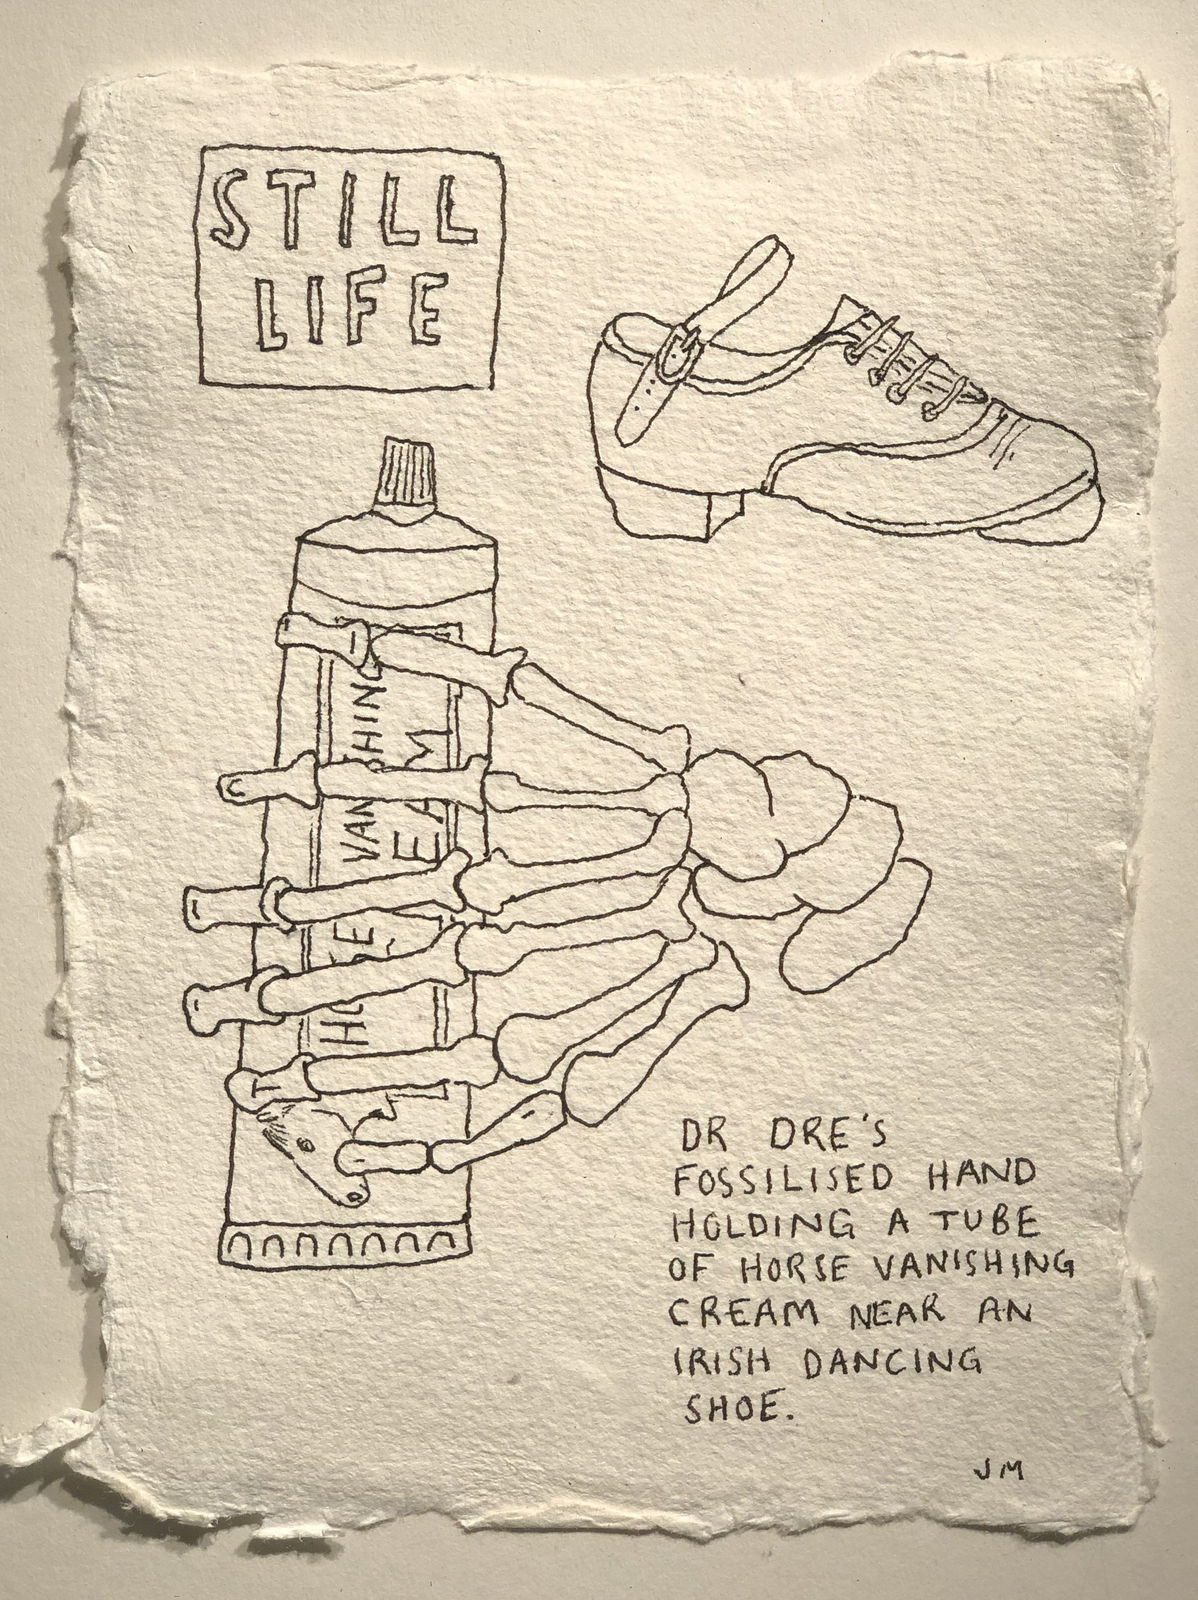 STILL
LIFE
DR DRE'S
FOSSILISED HAND
HOLDING A TUBE
OF HORSE VANISHING
CREAM NEAR AN
IRISH DANCING
SHOE.
JM